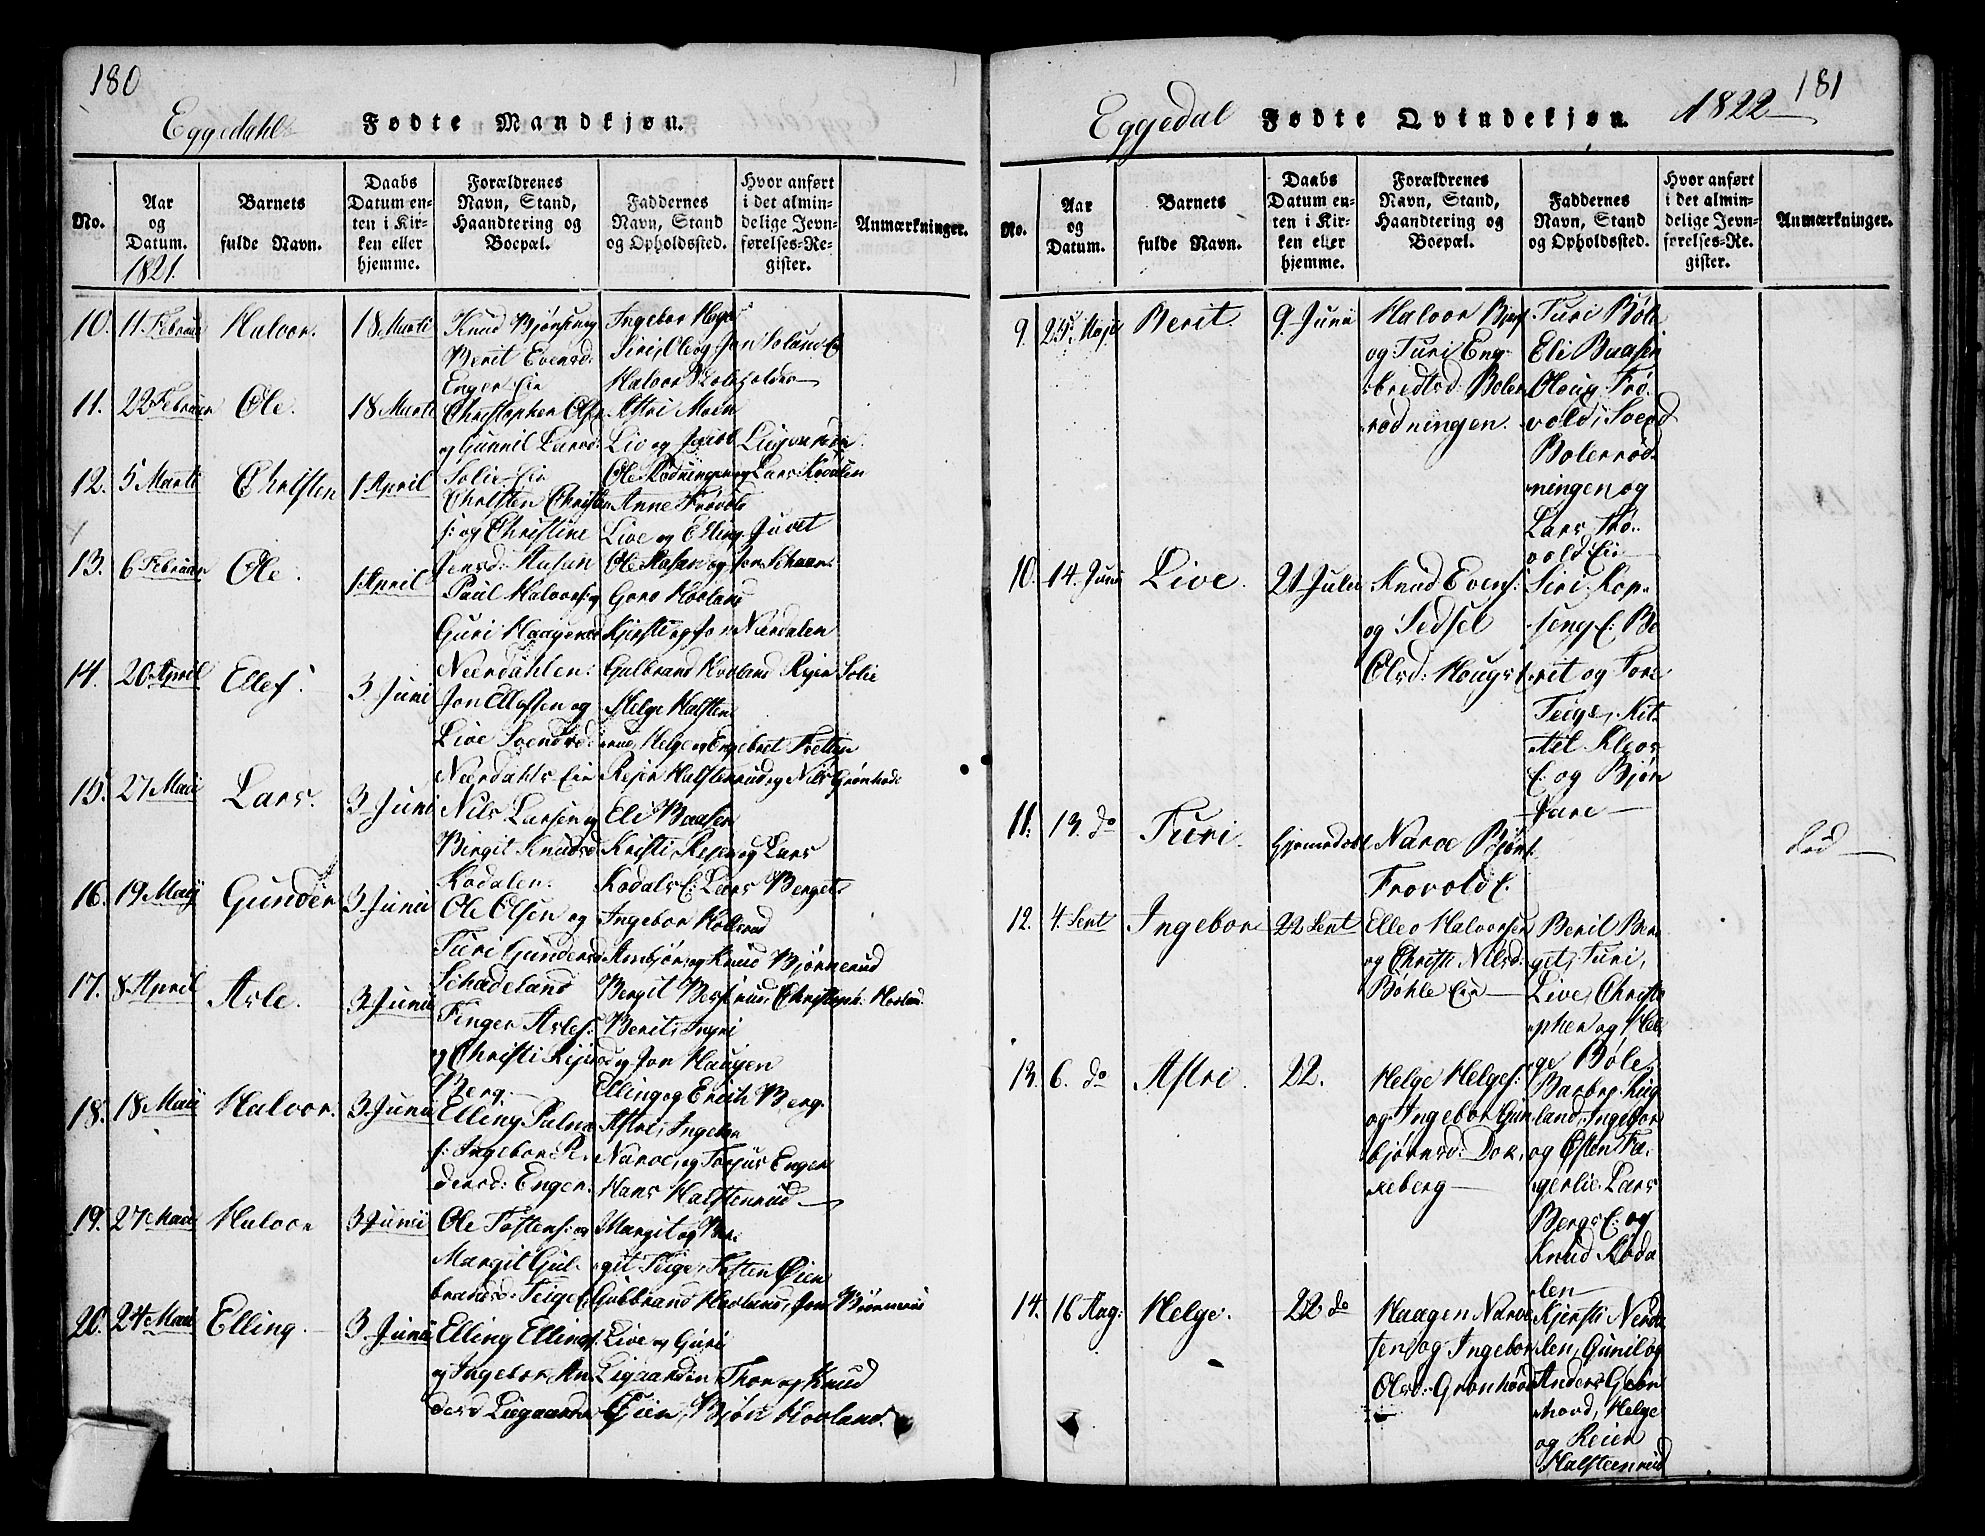 180
Eggedahl
Fødte Mandkjøn.
No.
Aar og Datum.
1821.
Barnets fulde Navn.
Daabs Datum enten i Kirken eller hjemme.
Forældrenes Navn, Stand, Haandtering og Boepæl.
Faddernes Navn, Stand og Opholdssted.
Hvor anført i det almindelige Jevnførelses-Register.
Anmærkninger.
10. 11 Februar Halvor. 18 Marti
Knud Bjørnsen og
Berit Evensd:
Enger Eie
Ingebor
Siri, Ole og Jon Soland Eie
Halvor
11. 22 Februar Ole. 18 Marti
Christopher Olsen
og Gunnil Larsd:
Solie Eie
Astri Moen
Liv og Jacob
Ole Rødningen og Lars Kodalen
12. 5 Marti Christen 1 April
Christen Christen
s: og Christine
Jensd: Aasan
Anne Frøvold
Live og Elling Juvet
Ole Aasan og Jon
13. 6 Februar Ole. 1 April
Paul Halvors: og
Guri Haagensd
Nærdahlen:
Goro Hovland
Kjersti og Jon Nærdalen
Gulbrand Hovland Reier Solie
14. 20 April Ellef. 3 Juni
Jon Ellefsen og
Live Svendsd:
Nærdahls Eie
Helge Halsten
rud, Helge og Engebret
Reier Halstenrud og Nils Grønhovd
15. 27 Maii Lars. 3 Juni
Nils Larsen og
Birgit Knudsd
Kodalen:
Eli Baasen
Kristi, Reier og Lars
Kodals E: Lars Berget
16. 19 Maij Gunder 3 Junii
Ole Olsen og
Turi Gundersd
Schadeland
Ingebor Kollerud
Anbjør og Knud Bjørnerud
17. 8 April Asle. 3 Junii
Finger Aslef:
og Christi Reiersd
Berg.
Bergit
Berit, Ingri
og Jon Haugen
Elling og Erich Berg.
18. 18 Maii Halvor. 3 Junii
Elling Palme
s: Ingebor R.
dersd: Enger.
Astri, Ingebor
Narve, og Torjus Enger
Hans Halstenrud
19. 27 Maii Halvor 3 Junii
Ole Tostens: og
Margit Gul-
brandsd: Teige E.
Margit og Ber-
git Teige, Tosten Øien
Gulbrand Hovland, Jon Bjørnerud
20. 24 Maii Elling. 3 Junii
Elling Ellings
og Ingebor An
dersd Liegaarden
Live og Guri
Ligaarden, Thor og Knud
Øien, Bjøn Hovland.
181
Eggedal
Fødte Qvindekjøn.
1822
No.
Aar og Datum.
Barnets fulde Navn.
Daabs Datum enten i Kirken eller hjemme.
Forældrenes Navn, Stand, Haandtering og Boepæl.
Faddernes Navn, Stand og Opholdssted.
Hvor anført i det almindelige Jevnførelses-Re.gister.
Anmærkninger.
9. 25 Maji Berit. 9. Junii
Halvor
og Turi Eng-
bredtsd: Bøler
rødningen.
Turi Bøle
Eli Baasen
Oloug Frø-
vold, Svend
Bølerrød-
ningen og
Lars Frø-
vold Eie
10. 14. Junii Live. 21 Julii
Knud Evens:
og Sedsel
Olsd: Hougs E
Siri Kop-
seng E: Be
rit og Tore
Teige, Kit-
til Kleve
E: og Bjøn
Fare
11. 13. do Turi. Hjemedøbt
Narve Bjøns
Frøvold E.
død
12. 4 Sept Ingebor 22 Sept
Ellev Halvorsen
og Christi Nilsd:
Bøhle Eie
Beril Ber-
get, Turi,
Live, Christo
pher og Hel-
ge Bøle
13. 6. do Astri. 22.
Helge Helges:
og Ingebor Gun
bjørnsd: Dok
keberg
Barbro
land, Ingebor
og Østen Fa-
gerlie Lars
Bergs E: og
Knud Koda-
len
14. 16 Aug: Helge. 22 do
Haagen Narve
sen og Ingebor
Olsd: Grønhovd
Kjersti Nerda
len, Gunil og
Anders Grøn
hovd, Helge
og Reier
Halsteenrud